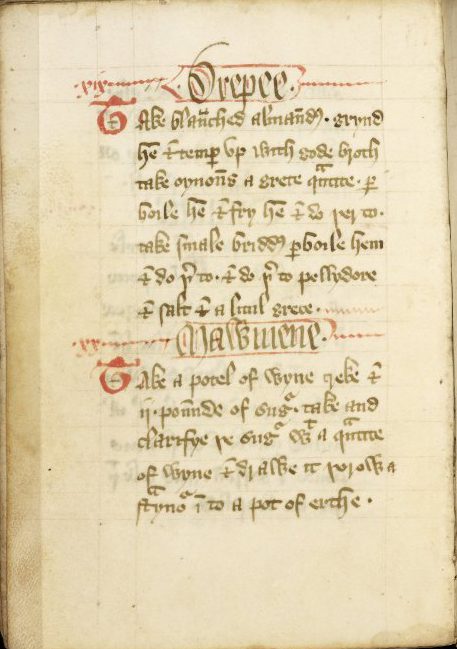 .xix. Drepee.
Take blañched almañdꝭ. grynd
hē ⁊ temꝑ vp with gode broth
take oynoñs a grete qᵃntite. ꝑ
boile hē ⁊ fry hē ⁊ do þerto.
take smale briddꝭ ꝑboile hem
⁊ do þᵉto. ⁊ do þᵉto pellydore
⁊ salt ⁊ a litul grece.
.xx. Mawmene.
Take a potel of wyne greke ⁊
ii. poūnde of sugᵉ. take and
clarifye þe sugᵉ wᵗ a qᵃntite
of wyne ⁊ drawe it þorow a
stᵃynoᵉ ī to a pot of erthe.